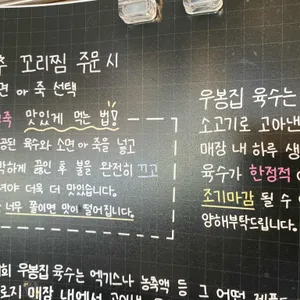 꼬리찜 주문 시
면 or 죽 선택
맛있게 먹는 법!
육수와 소면 or 죽을 넣고
끓인 후 불을 완전히 끄고
더욱 더 맛있습니다.
너무 졸이면 맛이 떨어집니다.
우봉집 육수는
소고기로 고아낸
매장 내 하루 생
육수가 한정적
조기마감 될 수
양해부탁드립니다.
우봉집 육수는 엑기스나 농축액 등 그 어떤
매장 내에서 고아낸